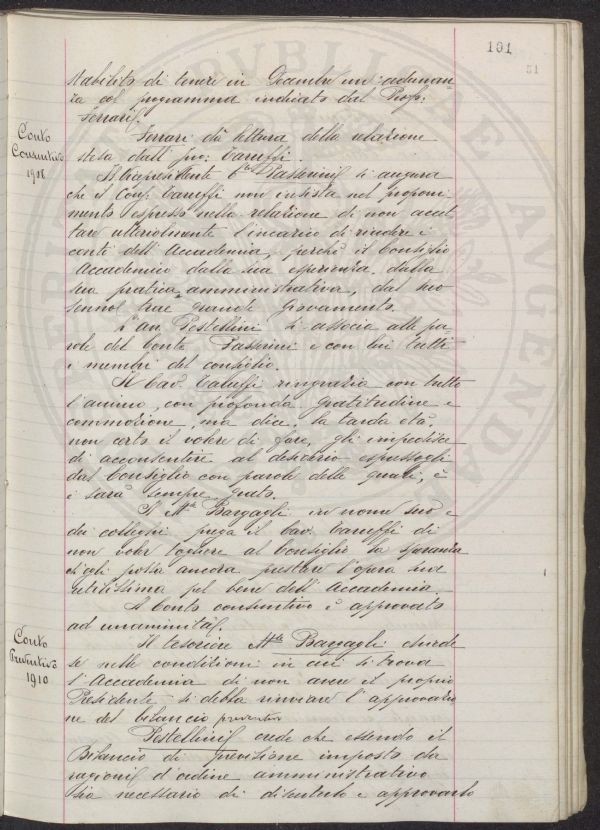 191
51
stabilito di tenere in Dicembre un'adunan-
za col programma indicato dal Prof.
Ferrari.
Conto
Consuntivo
1908
Ferrari dà lettura della relazione
stesa dall' Caruffi.
Il Vicepresidente Passerini si augura
che il Caruffi non insista nel proponi-
mento espresso nella relazione di non accet-
tare ulteriormente l'incarico di rivedere i
conti dell'Accademia, perchè il Consiglio
Accademico dalla sua esperienza, dalla
sua pratica amministrativa, dal suo
senno trae grande giovamento.
L'on. Pestellini si associa alle pa-
role del Conte Passerini e con lui tutti
i membri del consiglio.
Il Cav. Caruffi ringrazia con tutto
l'animo, con profonda gratitudine e
commozione, ma dice, la tarda età,
non certo il volere di fare, gli impedisce
di acconsentire al desiderio espressogli
dal Consiglio con parole delle quali, è
e sarà sempre grato.
Il Mse Bargagli in nome suo e
dei colleghi prega il Cav. Caruffi di
non voler togliere al Consiglio la speranza
ch'egli possa ancora prestare l'opera sua
utilissima pel bene dell'Accademia.
Il Conto consuntivo è approvato
ad unanimità.
Conto
Preventivo
1910
Il tesoriere Mse Bargagli chiede
se nelle condizioni in cui si trova
l'Accademia di non avere il proprio
Presidente si debba rinviare l'approvazio
ne del bilancio preventivo
Pestellini crede che essendo il
Bilancio di previsione imposto da
ragioni d'ordine amministrativo
sia necessario di discuterlo e approvarlo